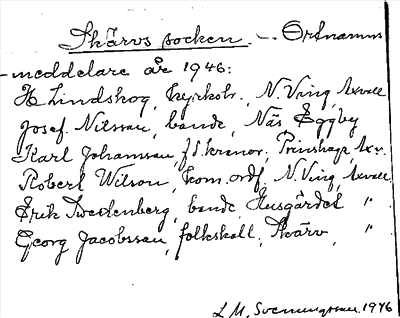 Skärvs socken. - Ortnamns
-meddelare år 1946:
H Lindskog, kyrkohr., N. Ving, Axvall
Josef. Nilsson, bonde, Näs Eggby
Karl Johansson, f.d. kronor, Prinshaga, Axv.
Robert Wilson, kom. ordf, N. Ving, Axvall
Erik Swedenberg, bonde, Husgärdet "
Georg Jacobsson, folkskoll. Skärv, "
L M. Svenungsson. 1946